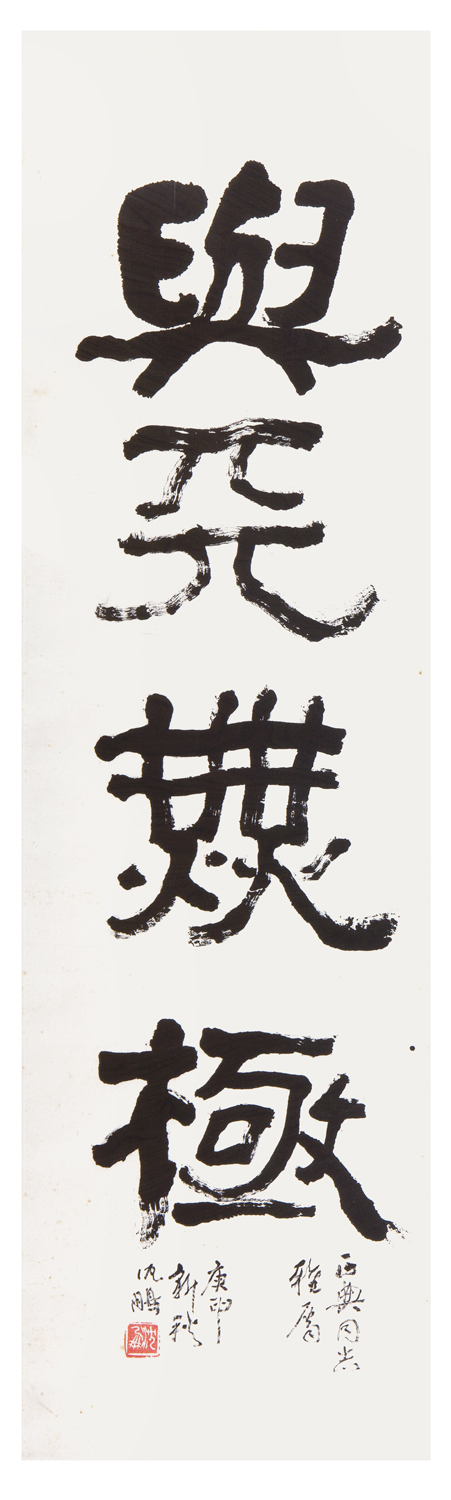 與天無極
正興同志
雅屬
庚申
新秋
沈鵬